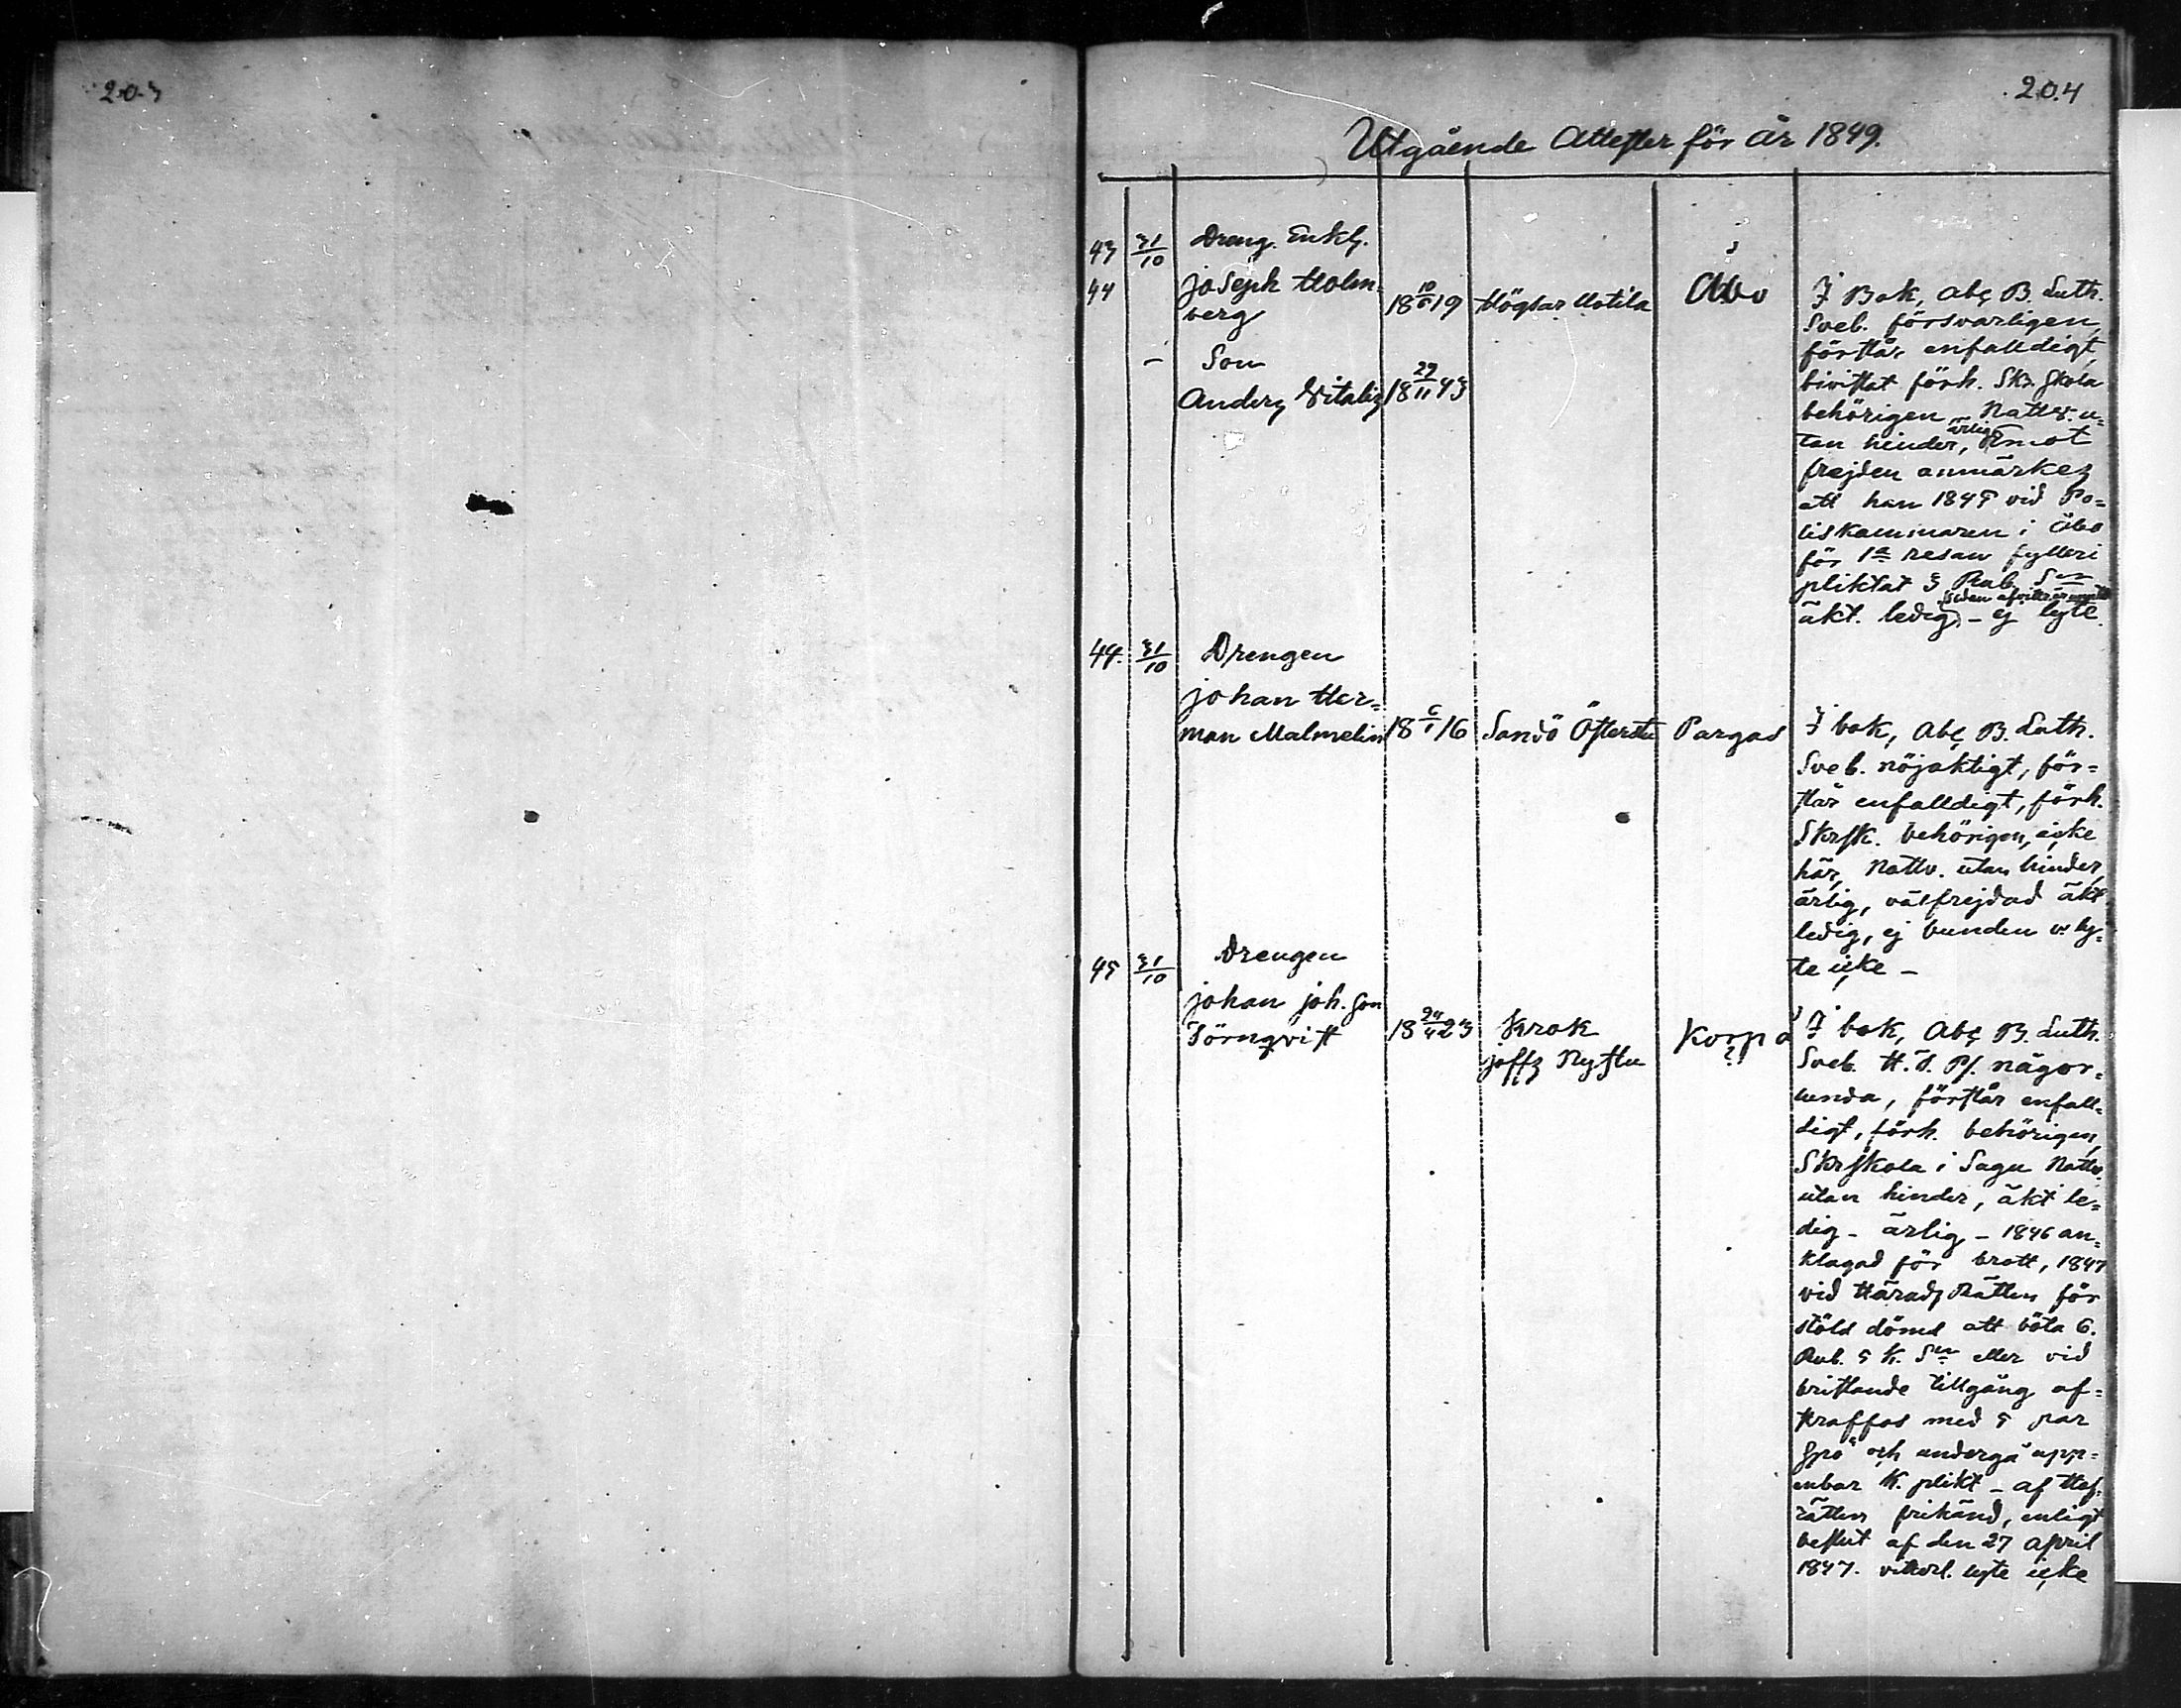 203
204
Utgående Attester för år 1849.
43 31/10 Dreng. Enkl.
44 Joseph Holm=
berg 18 10/6 19 Högsar Uotila Åbo
— Son
Anders Vitalis 18 29/11 43
I Bok, Abc B. Luth.
Sveb. försvarligen,
förstår enfalldigt,
bivistat förh. Skr. skola
behörigen, Nattv. u=
tan hinder, ärlig, Emot
frejden anmärkes
att han 1845 vid Po=
liskammaren i Åbo
för 1a resan fylleri
pliktat 3 Rub. Sr
äkt. ledig – ej lyte.
44. 31/10 Drengen
Johan Her=
man Malmelin 18 6/1 16 Sandö Östersta Pargas
I bok, Abc B. Luth.
Sveb. nöjaktigt, för=
står enfalldigt, förh.
Skrsk. behörigen, icke
här, Nattv. utan hinder,
ärlig, välfrejdad äkt
ledig, ej bunden v. ly=
te icke –
45 31/10 Drengen
Johan Joh. Son
Törnqvist 18 24/4 23 Krok
Joffs Nystu Korpo
I bok, Abc B. Luth.
Sveb. H. T. Ps. någor=
lunda, förstår enfall=
digt, förh. behörigen,
Skrskola i Sagu Nattv.
utan hinder, äkt le=
dig – ärlig – 1846 an=
klagad för brott, 1847
vid Härads Rätten för
stöld dömd att böta 6.
Rub. 5 K. Sr eller vid
bristande tillgång af=
straffas med 5 par
Spö och undergå upp=
enbar K. plikt – af Hof=
rätten frikänd, enligt
beslut af den 27 April
1847. lyte icke